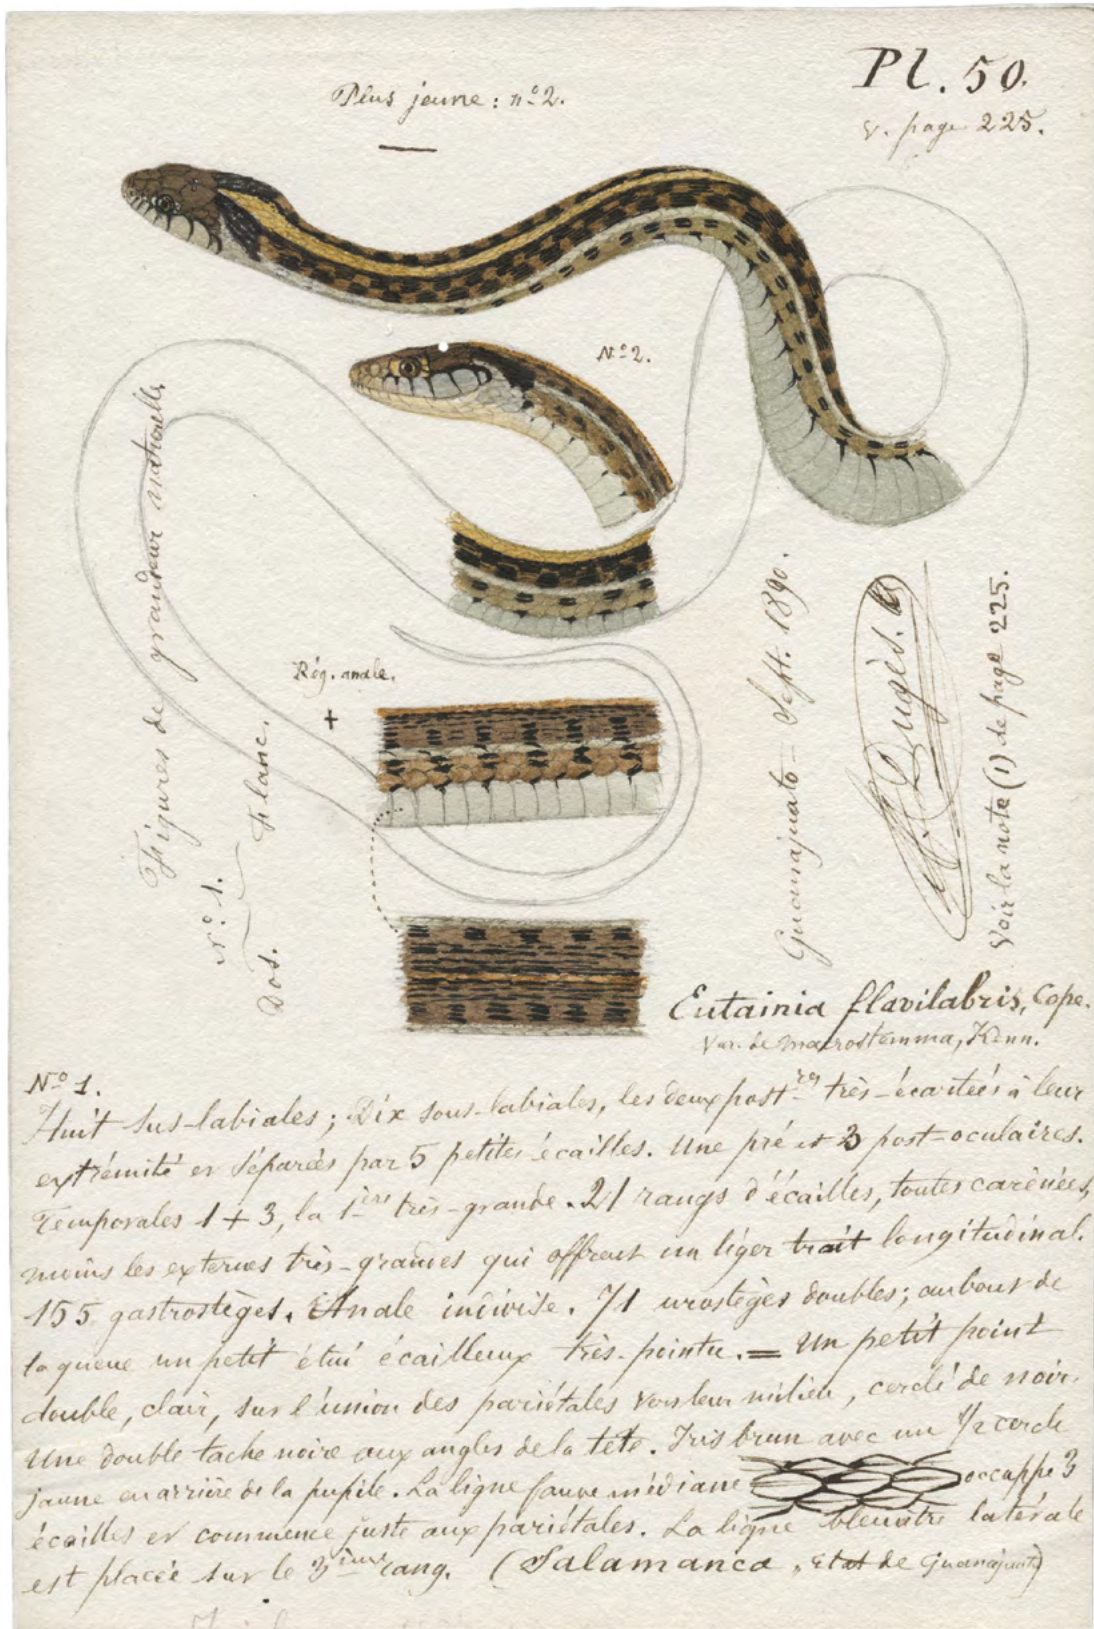 Pl. 50.
v. page 225.
Plus jeune : nº 2.
Nº 2.
Figures de grandeur naturelle.
Rég. anale.
+
Nº. 1.
Flanc.
Dos.
Guanajuato – Sept. 1890.
A. Dugès.
Voir la note (1) de page 225.
Eutainia flavilabris, Cope.
Var. de macrostemma, Kenn.
Nº 1.
Huit sus-labiales ; Dix sous-labiales, les deux postres très-écartées à leur
extrémité et séparées par 5 petites écailles. Une pré et 3 post-oculaires.
Temporales 1 + 3, la 1ière très-grande. 21 rangs d'écailles, toutes carénées,
moins les externes très-grandes qui offrent un léger trait longitudinal.
155 gastrostèges. Anale indivise. 71 urostèges doubles; au bout de
la queue un petit étui écailleux très-pointu. = Un petit point
double, clair, sur l'union des pariétales vers leur milieu, cerclé de noir.
Une double tache noire aux angles de la tête. Iris brun avec un 1/2 cercle
jaune en arrière de la pupile. La ligne fauve médiane occuppe 3
écailles et commence juste aux pariétales. La ligne bleuâtre latérale
est placée sur le 3ième rang. (Salamanca, État de Guanajuato)